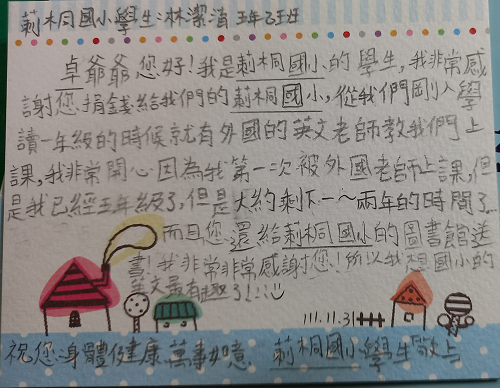 莿桐國小學生:林潔消 五年乙班
卓爺爺您好!我是莿桐國小的學生,我非常感
謝您捐錢給我們的莿桐國小,從我們剛入學
讀一年級的時候就有外國的英文老師教我們上
課,我非常開心因為我第一次被外國老師上課,但
是我已經五年級了,但是大約剩下一~兩年的時間了。
而且您還給莿桐國小的圖書館送
書!我非常非常感謝您!所以我想國小的
英文最有趣了!!:)
111.11.31
祝您:身體健康 萬事如意 莿桐國小學生敬上